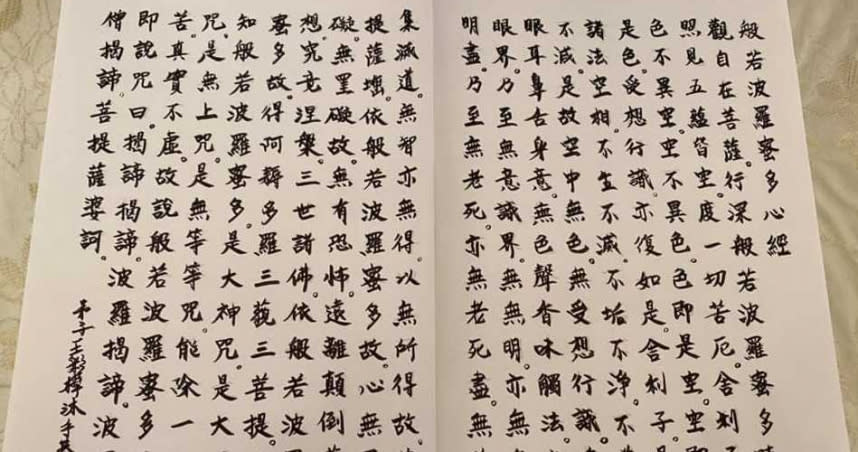 般若波羅蜜多心經
觀自在菩薩。行深般若波羅蜜多
照見五蘊皆空。度一切苦厄。舍利
色不異空。空不異色。色即是空。空
是色。受想行識。亦復如是。舍利子
諸法空相。不生不滅。不垢不淨。不
不滅。是故空中無色。無受想行識。
眼耳鼻舌身意。無色聲香味觸法。
眼界。乃至無意識界。無無明。亦無
明盡。乃至無老死。亦無老死盡。無
集滅道。無智亦無得。以無所得故。
提薩埵。依般若波羅蜜多故。心無
礙。無罣礙故。無有恐怖。遠離顛倒
想。究竟涅槃。三世諸佛。依般若波
蜜多故。得阿耨多羅三藐三菩提。
知般若波羅蜜多。是大神咒。是大
咒。是無上咒。是無等等咒。能除一
苦。真實不虛。故說般若波羅蜜多
即說咒曰。揭諦揭諦。波羅揭諦。波
僧揭諦。菩提薩婆訶。
弟子王彩樺沐手